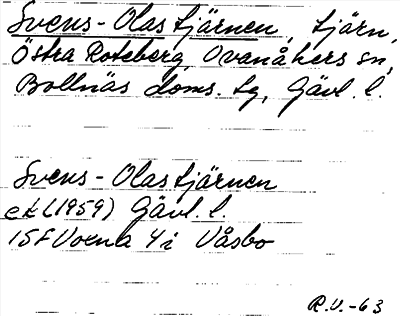 Svens-Olastjärnen, tjärn,
Östra Roteberg, Ovanåkers sn,
Bollnäs doms. tg, Gävl. l.
Svens-Olastjärnen
ek (1959) Gävl. l.
15F Voxna 4 i Våsbo
R.U.-63